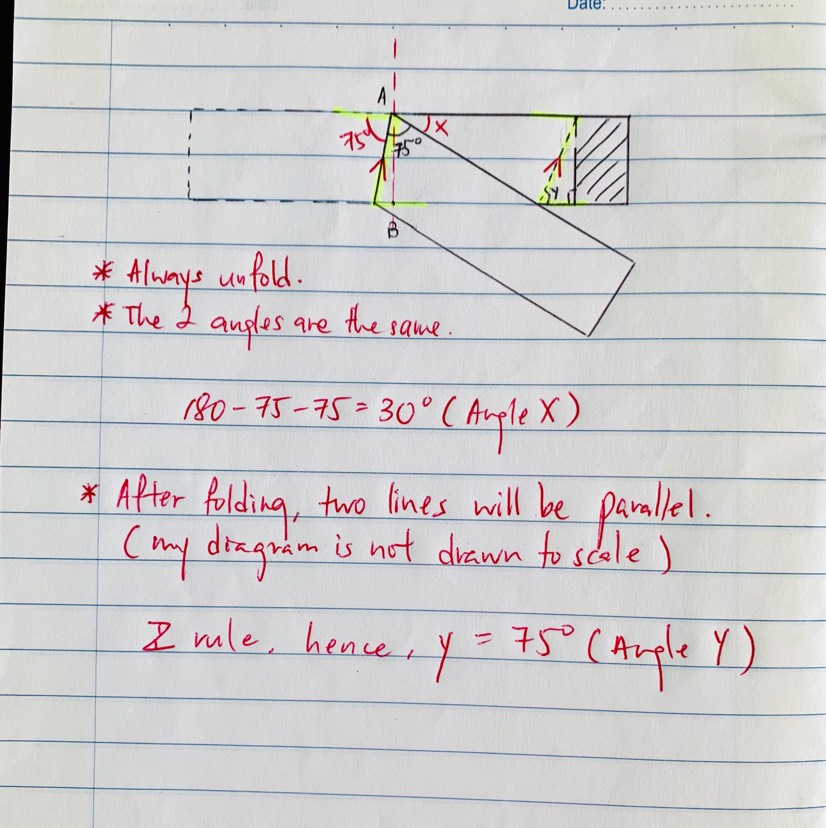 Date:
A
75°
75°
X
Y
B
* Always unfold.
* The 2 angles are the same.
180-75-75=30° (Angle X)
* After folding, two lines will be parallel.
(my diagram is not drawn to scale)
Z rule, hence, y = 75° (Angle Y)